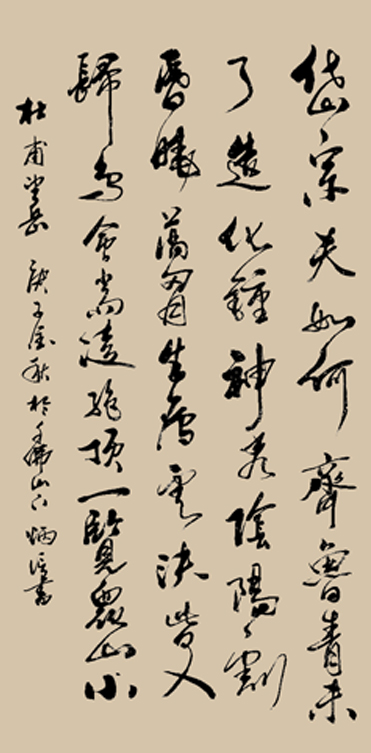 岱宗夫如何齊魯青未
了造化鍾神秀陰陽割
昏曉蕩胷生層雲決眥入
歸鳥會當凌絕頂一覽眾山小
杜甫望岳 庚子金秋於千佛山下 炳書